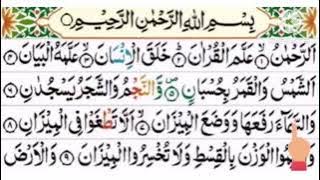 بِسْمِ اللهِ الرَّحْمٰنِ الرَّحِيْمِ
اَلرَّحْمٰنُ ۙ۱ عَلَّمَ الْقُرْاٰنَ ۙ۲ خَلَقَ الْاِنْسَانَ ۙ۳ عَلَّمَهُ الْبَيَانَ ۴
اَلشَّمْسُ وَالْقَمَرُ بِحُسْبَانٍ ۙ۵ وَّالنَّجْمُ وَالشَّجَرُ يَسْجُدٰنِ ۶
رَفَعَهَا وَوَضَعَ الْمِيْزَانَ ۙ۷ اَلَّا تَطْغَوْا فِى الْمِيْزَانِ ۸
الْوَزْنَ بِالْقِسْطِ وَلَا تُخْسِرُوا الْمِيْزَانَ ۹ وَالْاَرْضَ